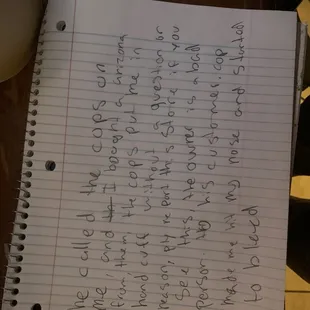 he called the cops on
me, and I bought a arizona
from them, the cops put me in
hand cuff without a question or
reason, plz report this store if you
see this, the owner is a bad
person to his customer. cop
made me hit my nose and started
to bleed